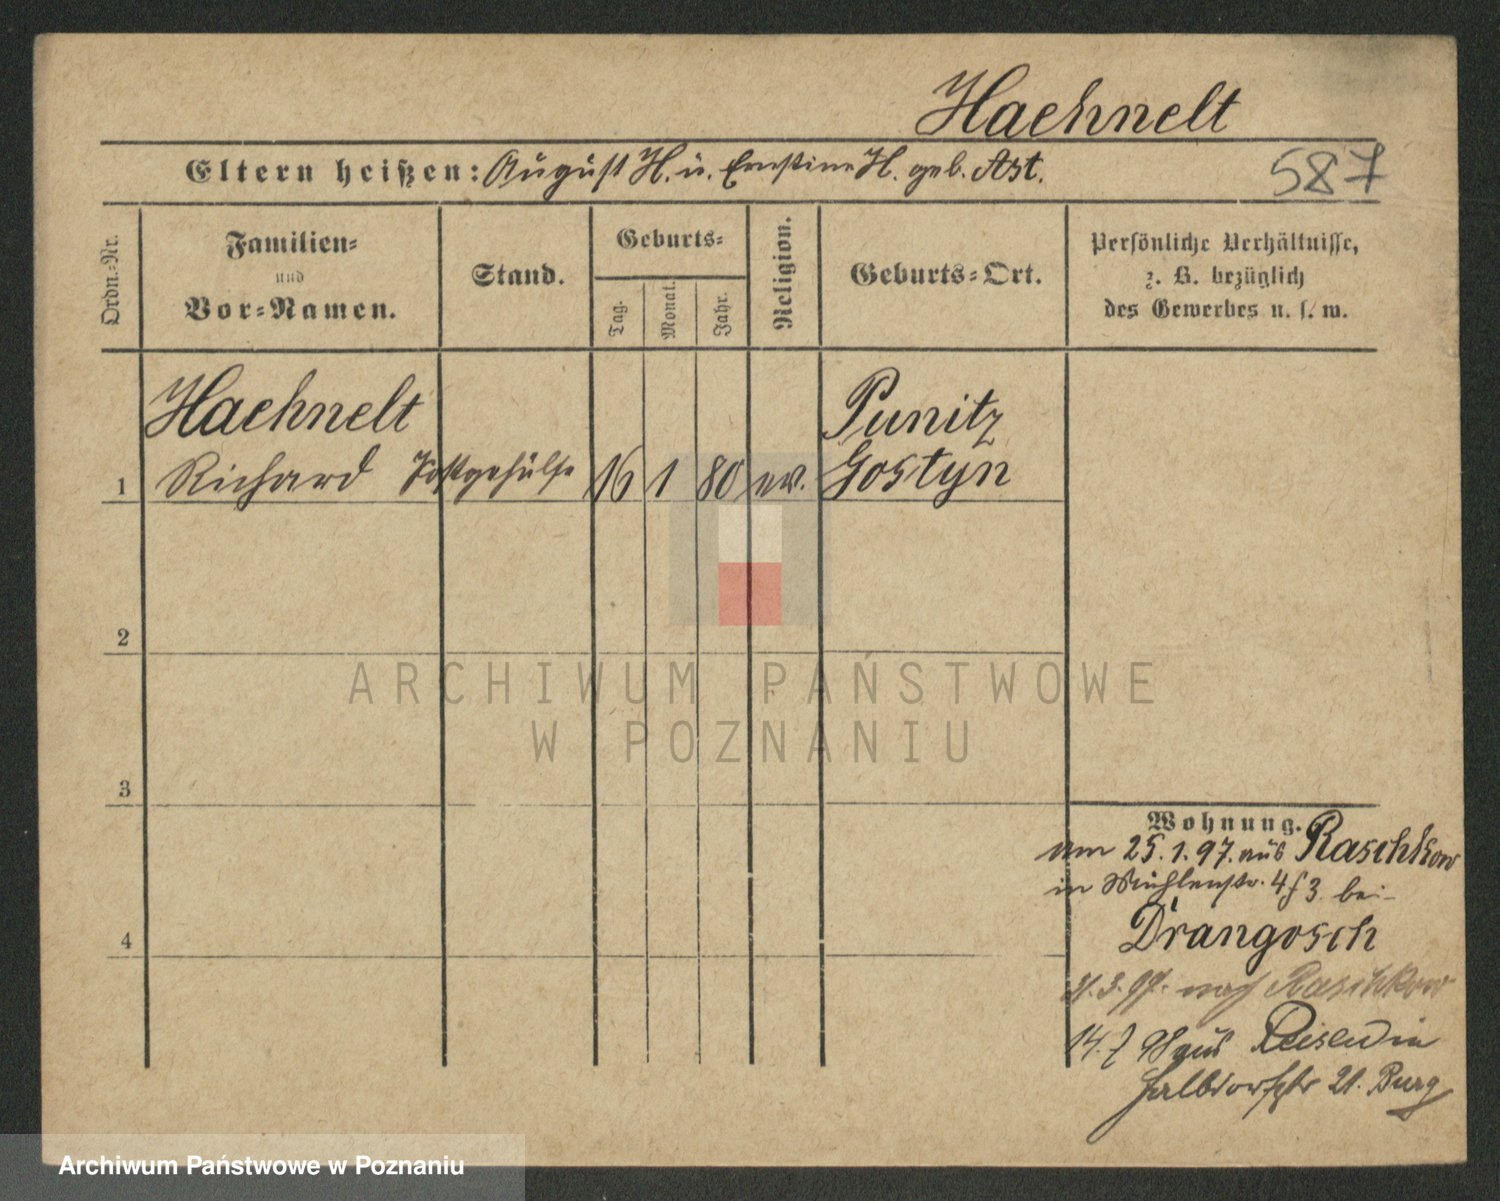 Haehnelt
Eltern heißen: August H. u. Ernstine H. geb. Ast.
587
Ordn.-Nr.
Familien-
und
Vor-Namen.
Stand.
Geburts-
Tag.
Monat.
Jahr.
Religion.
Geburts-Ort.
Persönliche Verhältnisse,
z. B. bezüglich
des Gewerbes u. s. w.
Haehnelt
Punitz
1 Richard Postgehülfe 16 1 80 ev. Gostyn
2
3
4
Wohnung.
am 25.1.97. aus Raschkow
in Mühlenstr. 4 3 bei
Drangosch
31.3.97. nach Raschkow
14.7 aus Reisen in
Halbdorfstr 21. Burg
ARCHIWUM PAŃSTWOWE
W POZNANIU
Archiwum Państwowe w Poznaniu